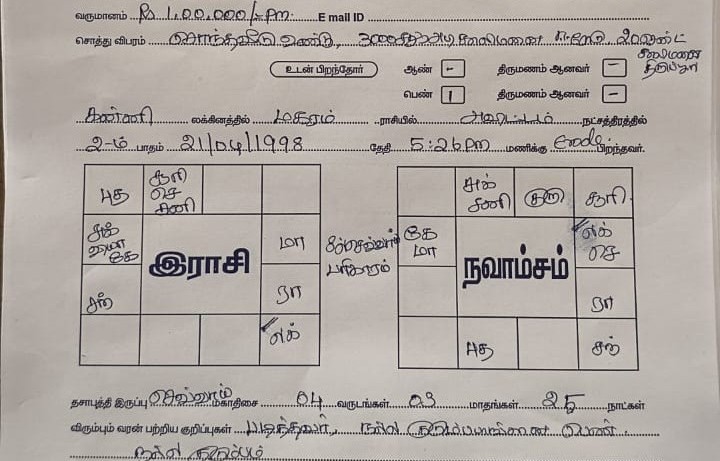 வருமானம் Rs 1,00,000/- PM. E mail ID
சொத்து விபரம் சொந்தவீடு உண்டு, 3000 சதுரஅடி வீட்டுமனை
உடன் பிறந்தோர் ஆண் - திருமணம் ஆனவர் -
பெண் 1 திருமணம் ஆனவர் -
கன்னி லக்கினத்தில் மகரம் ராசியில் அவிட்டம் நட்சத்திரத்தில்
2-ம் பாதம் 21/04/1998 தேதி 5:26 PM மணிக்கு Erode பிறந்தவர்.
புத சூரி செ சனி
சுக் கே மா
சந் ரா
லக்
இராசி
செவ்வாய் பரிகாரம்
சுக் சனி குரு சூரி
கே மா லக் செ
ரா
புத சந்
நவாம்சம்
தசாபுத்தி இருப்பு செவ்வாய் மகாதிசை 04 வருடங்கள் 03 மாதங்கள் 25 நாட்கள்
விரும்பும் வரன் பற்றிய குறிப்புகள் படித்தவர், நல்ல பெண்.
நல்ல குடும்பம்